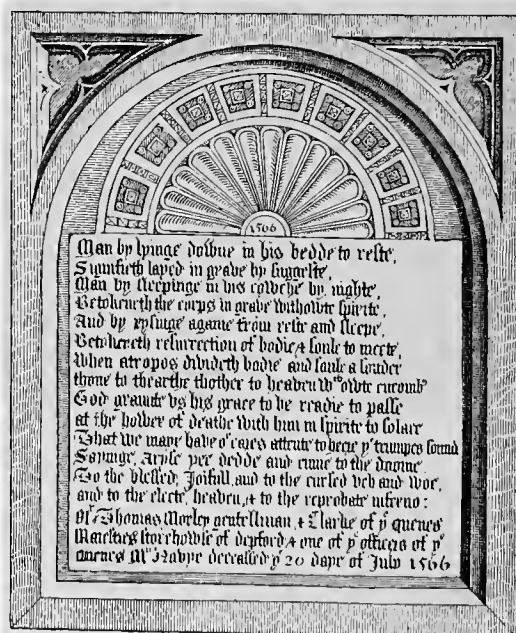 1566
Man by lyinge downe in his bedde to reste,
Signifieth layed in grave by suggeste,
Man by sleepinge in his cowche by nighte,
Betokeneth the corps in grave withowte spirite,
And by rysinge agame from reste and sleepe,
Betokeneth resurrection of bodie & soule to meete,
When atropos divideth bodie and soule a sonder
thone to thearthe thother to heaven wth owte encomb
God graunte vs his grace to be readie to passe
at the hower of deathe with him in spirite to solace
That we maye have or eares attente to heere ye trumpes sound
Sayinge, Aryse yee dedde and cume to the doome
To the blessed, Joifull, and to the cursed veh and woe,
and to the electe, heaven, & to the reprobate inferno:
Mr Thomas Morley gentellman, & Clarke of ye quenes
Maiesties storehowse of depford & one of ye officers of ye
quenes Mts Navye deceassed ye 20 daye of July 1566